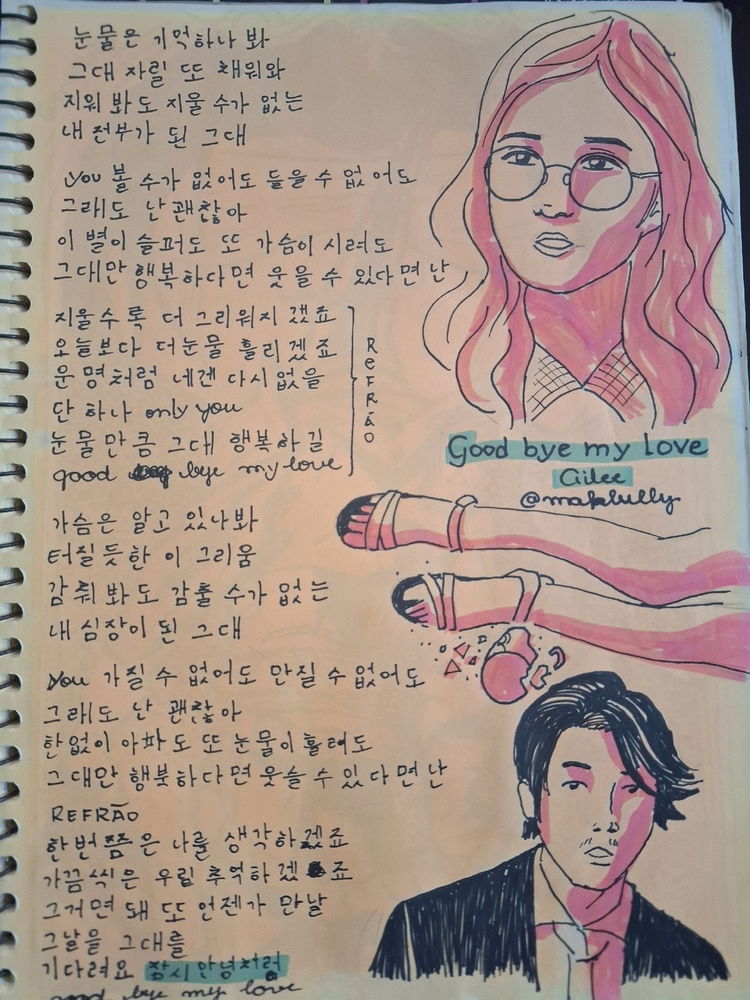 눈물은 기억하나 봐
그대 자릴 또 채워와
지워 봐도 지울 수가 없는
내 전부가 된 그대
you 볼 수가 없어도 들을 수 없어도
그래도 난 괜찮아
이 별이 슬퍼도 또 가슴이 시려도
그대만 행복하다면 웃을 수 있다면 난
지울수록 더 그리워지겠죠
오늘보다 더 눈물 흘리겠죠
운명처럼 네겐 다시 없을
단 하나 only you
눈물만큼 그대 행복하길
good bye my love
REFRÃO
가슴은 알고 있나봐
터질듯한 이 그리움
감춰 봐도 감출 수가 없는
내 심장이 된 그대
you 가질 수 없어도 만질 수 없어도
그래도 난 괜찮아
한없이 아파도 또 눈물이 흘려도
그대만 행복하다면 웃슬 수 있다면 난
REFRÃO
한번쯤은 나를 생각하겠죠
가끔씩은 우릴 추억하겠죠
그거면 돼 또 언젠가 만날
그날을 그대를
기다려요 잠시 안녕처럼
good bye my love
Good bye my love
Ailee